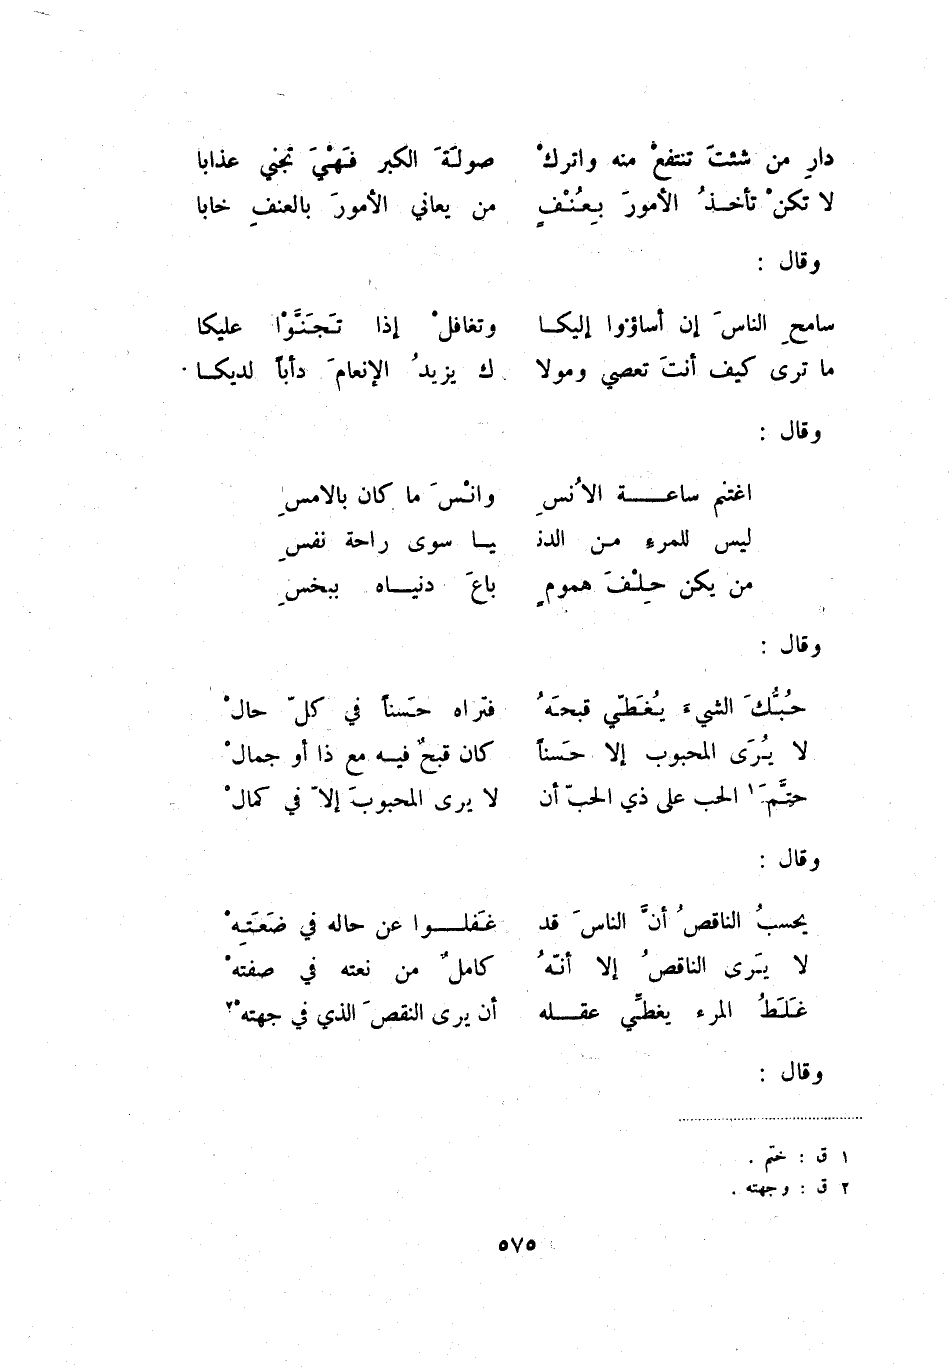 دارِ من شئتَ تنتفعْ منه واتركْ صولَةَ الكبر فَهْيَ تجني عذابا
لا تكنْ تأخـذُ الأمورَ بِعُنْفٍ من يعاني الأمورَ بالعنفِ خابا
وقال :
سامحِ الناسَ إن أساؤوا إليكـا وتغافلْ إذا تَجَنَّوْا عليكا
ما ترى كيف أنتَ تعصي ومولا ك يزيدُ الإنعامَ دأباً لديكـا
وقال :
اغتنم ساعـــة الأُنسِ وانْسَ ما كان بالامسِ
ليس للمرءِ مـن الدنـ يـا سوى راحة نفسِ
من يكن حِلْفَ همومٍ باعَ دنيـاه ببخسِ
وقال :
حُبُّكَ الشيءَ يُغَطّي قبحَهُ فتراه حَسناً في كلّ حالْ
لا يُرَى المحبوب إلا حَسناً كان قبحٌ فيـه مع ذا أو جمالْ
حتَّمَ١ الحب على ذي الحبّ أن لا يرى المحبوبَ إلاّ في كمالْ
وقال :
يحسبُ الناقصُ أنَّ الناسَ قد غَفلـــوا عن حاله في ضَعَتِـهْ
لا يَرى الناقصُ إلا أنّهُ كاملٌ من نعته في صفتهْ
غَلَطُ المرء يغطِّي عقـــله أن يرى النقصَ الذي في جهتهْ٢
وقال :
١ ق : ختم .
٢ ق : وجهته .
٥٧٥